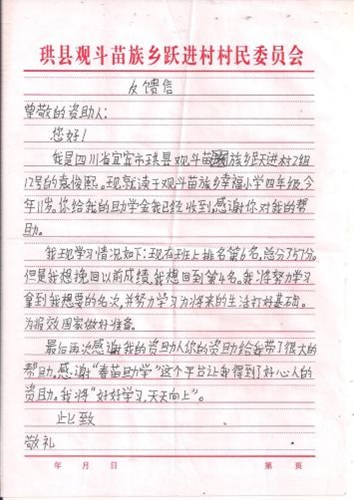 珙县观斗苗族乡跃进村村民委员会
反馈信
尊敬的资助人:
您好!
我是四川省宜宾市珙县观斗苗族乡跃进村2组
12号的袁俊熙。现就读于观斗苗族乡幸福小学四年级,今
年11岁。你给我的助学金我已经收到,感谢你对我的帮
助。
我现学习情况如下:现在班上排名第6名,总分757分。
但是我想挽回以前成绩,我想回到第4名。我将努力学习
拿到我想要的名次,并努力学习为将来的生活打好基础。
为报效国家做好准备。
最后再次感谢我的资助人你的资助给我带了很大的
帮助,感谢“春苗助学”这个平台让我得到了好心人的
资助。我将“好好学习,天天向上”。
此致
敬礼
年 月 日 第 页